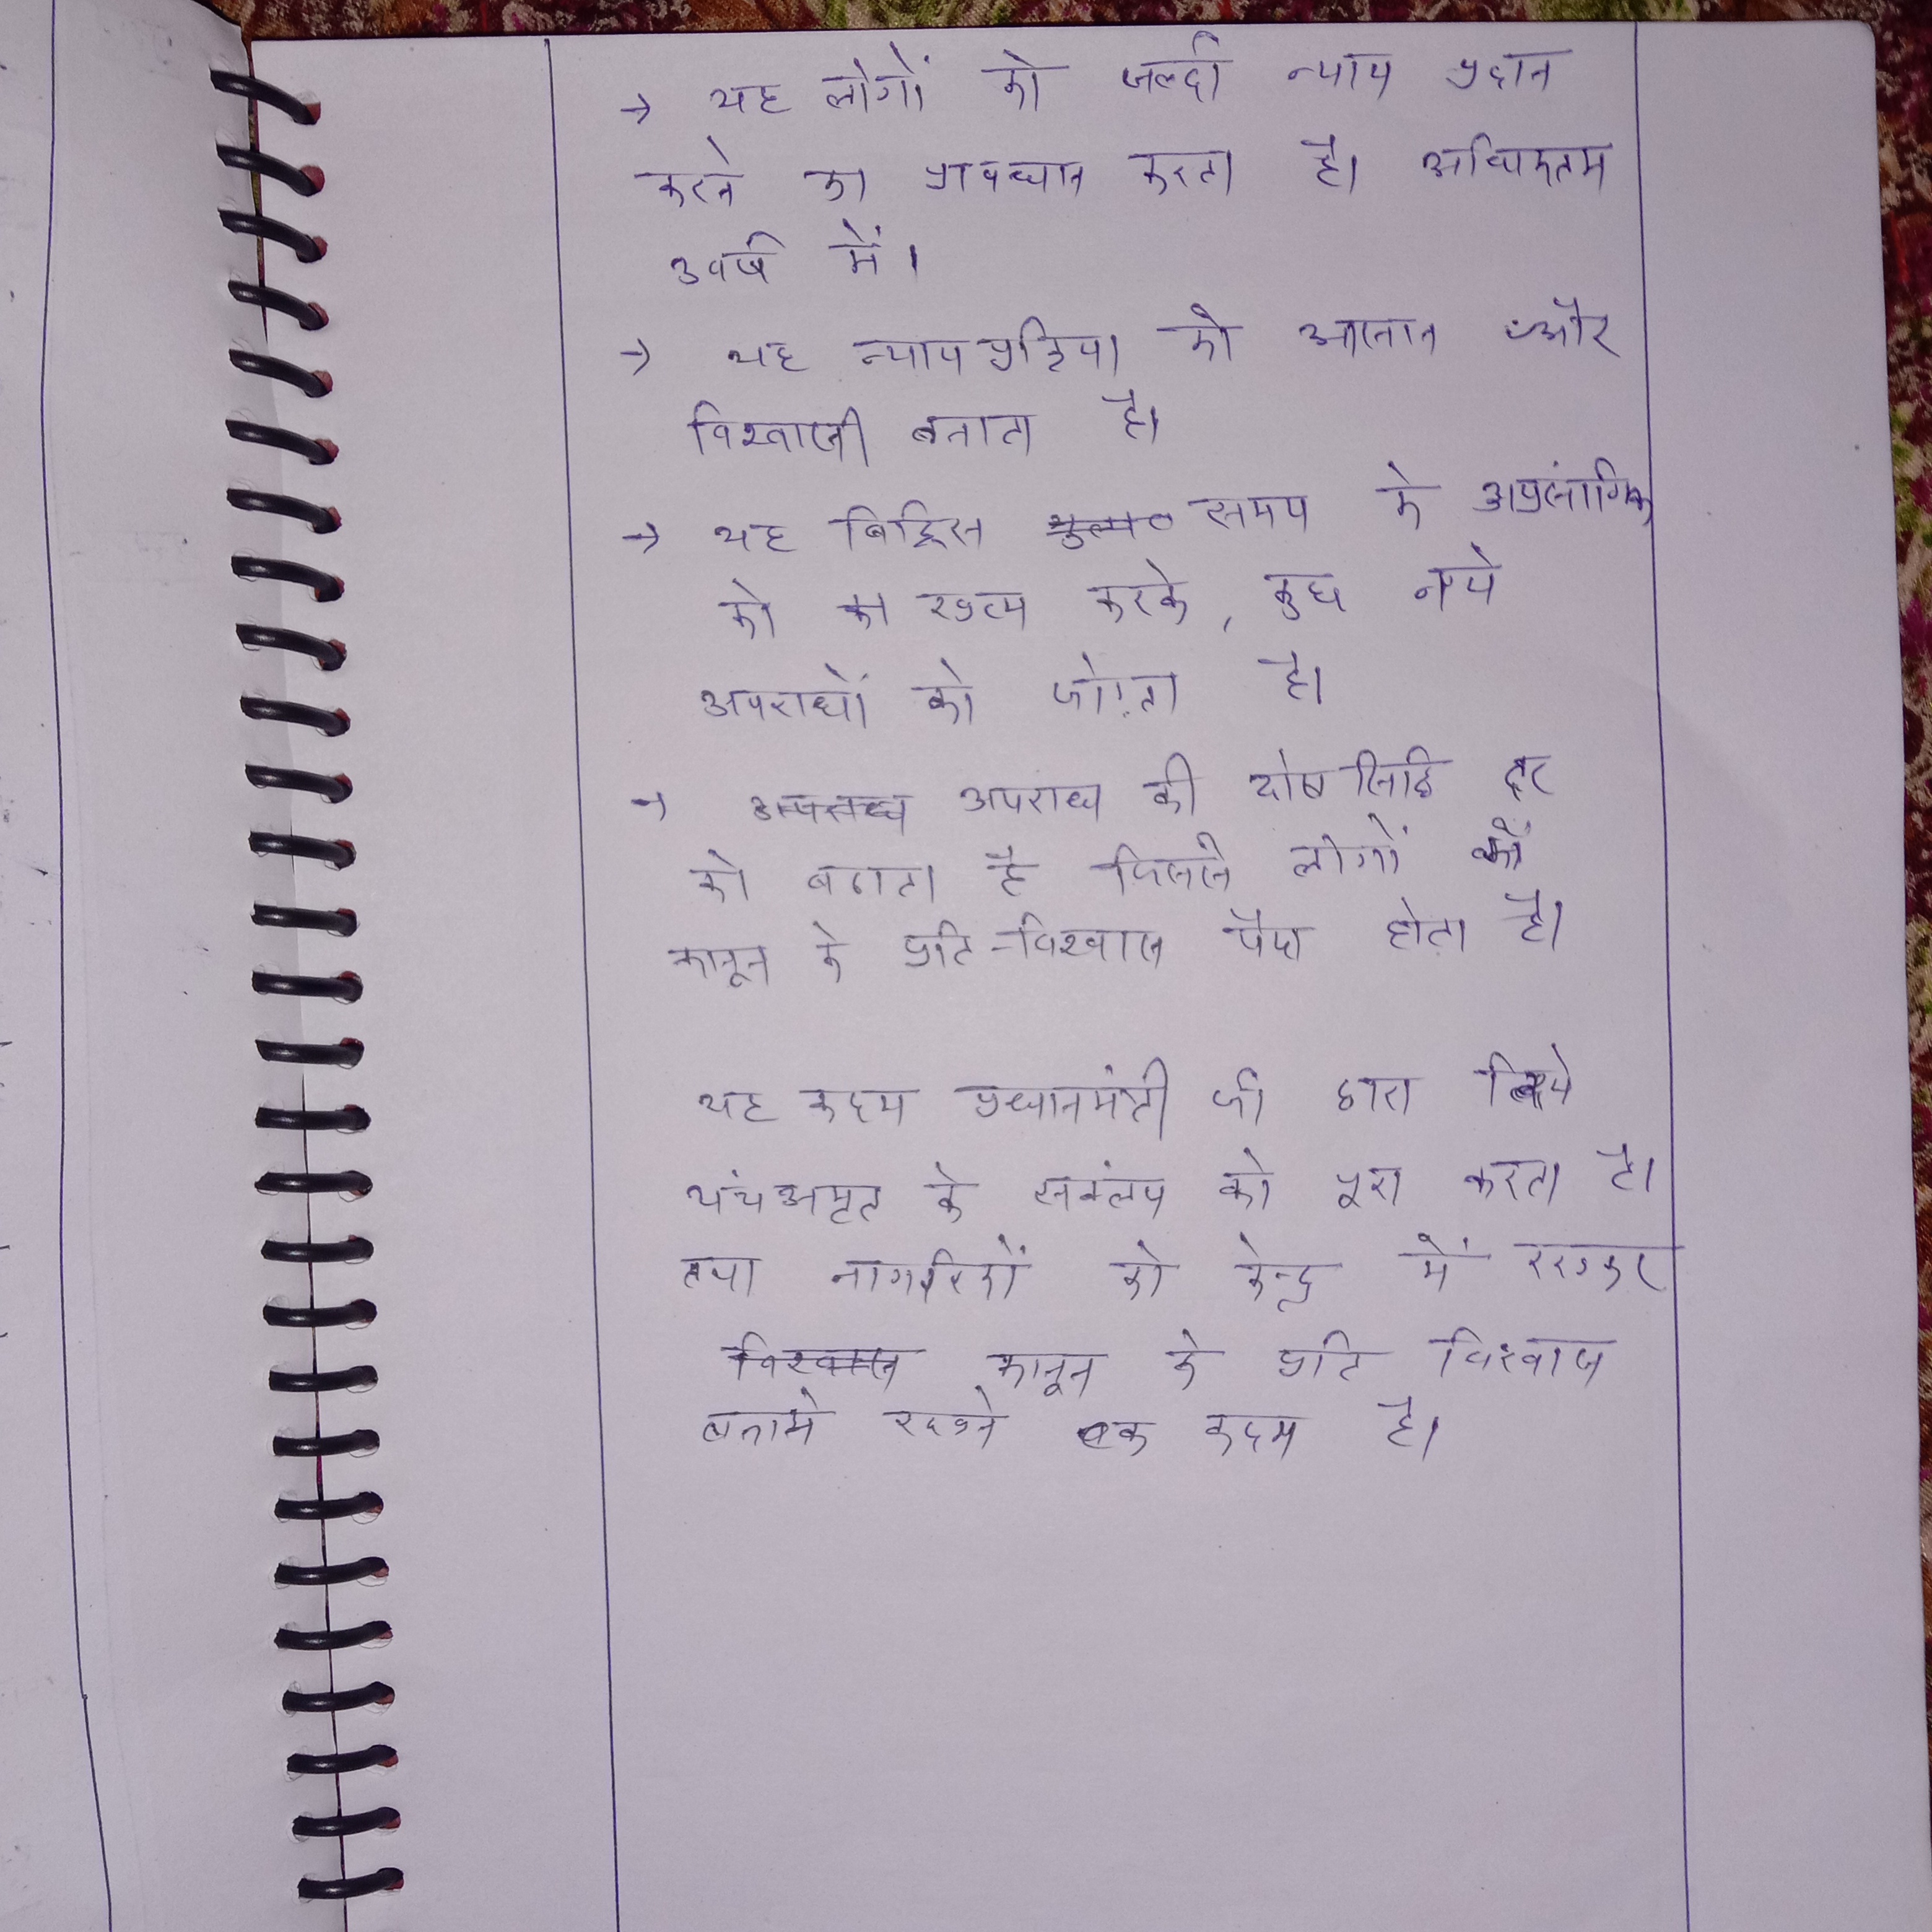 → यह लोगों को जल्दी न्याय प्रदान
करने का प्रावधान करता है। अधिकतम
3 वर्ष में।
→ यह न्याय प्रक्रिया को आसान और
विश्वासी बनाता है।
→ यह ब्रिटिस समय के अप्रसांगिक
को खत्म करके, कुछ नये
अपराधों को जोड़ता है।
→ अपराध की दोष सिद्धि दर
को बढाता है जिससे लोगों में
कानून के प्रति विश्वास पैदा होता है।
यह कदम प्रधानमंत्री जी द्वारा किये
पंचअमृत के सकंल्प को पूरा करता है।
तथा नागरिकों को केन्द्र में रखकर
कानून के प्रति विश्वास
बनाये रखने एक कदम है।